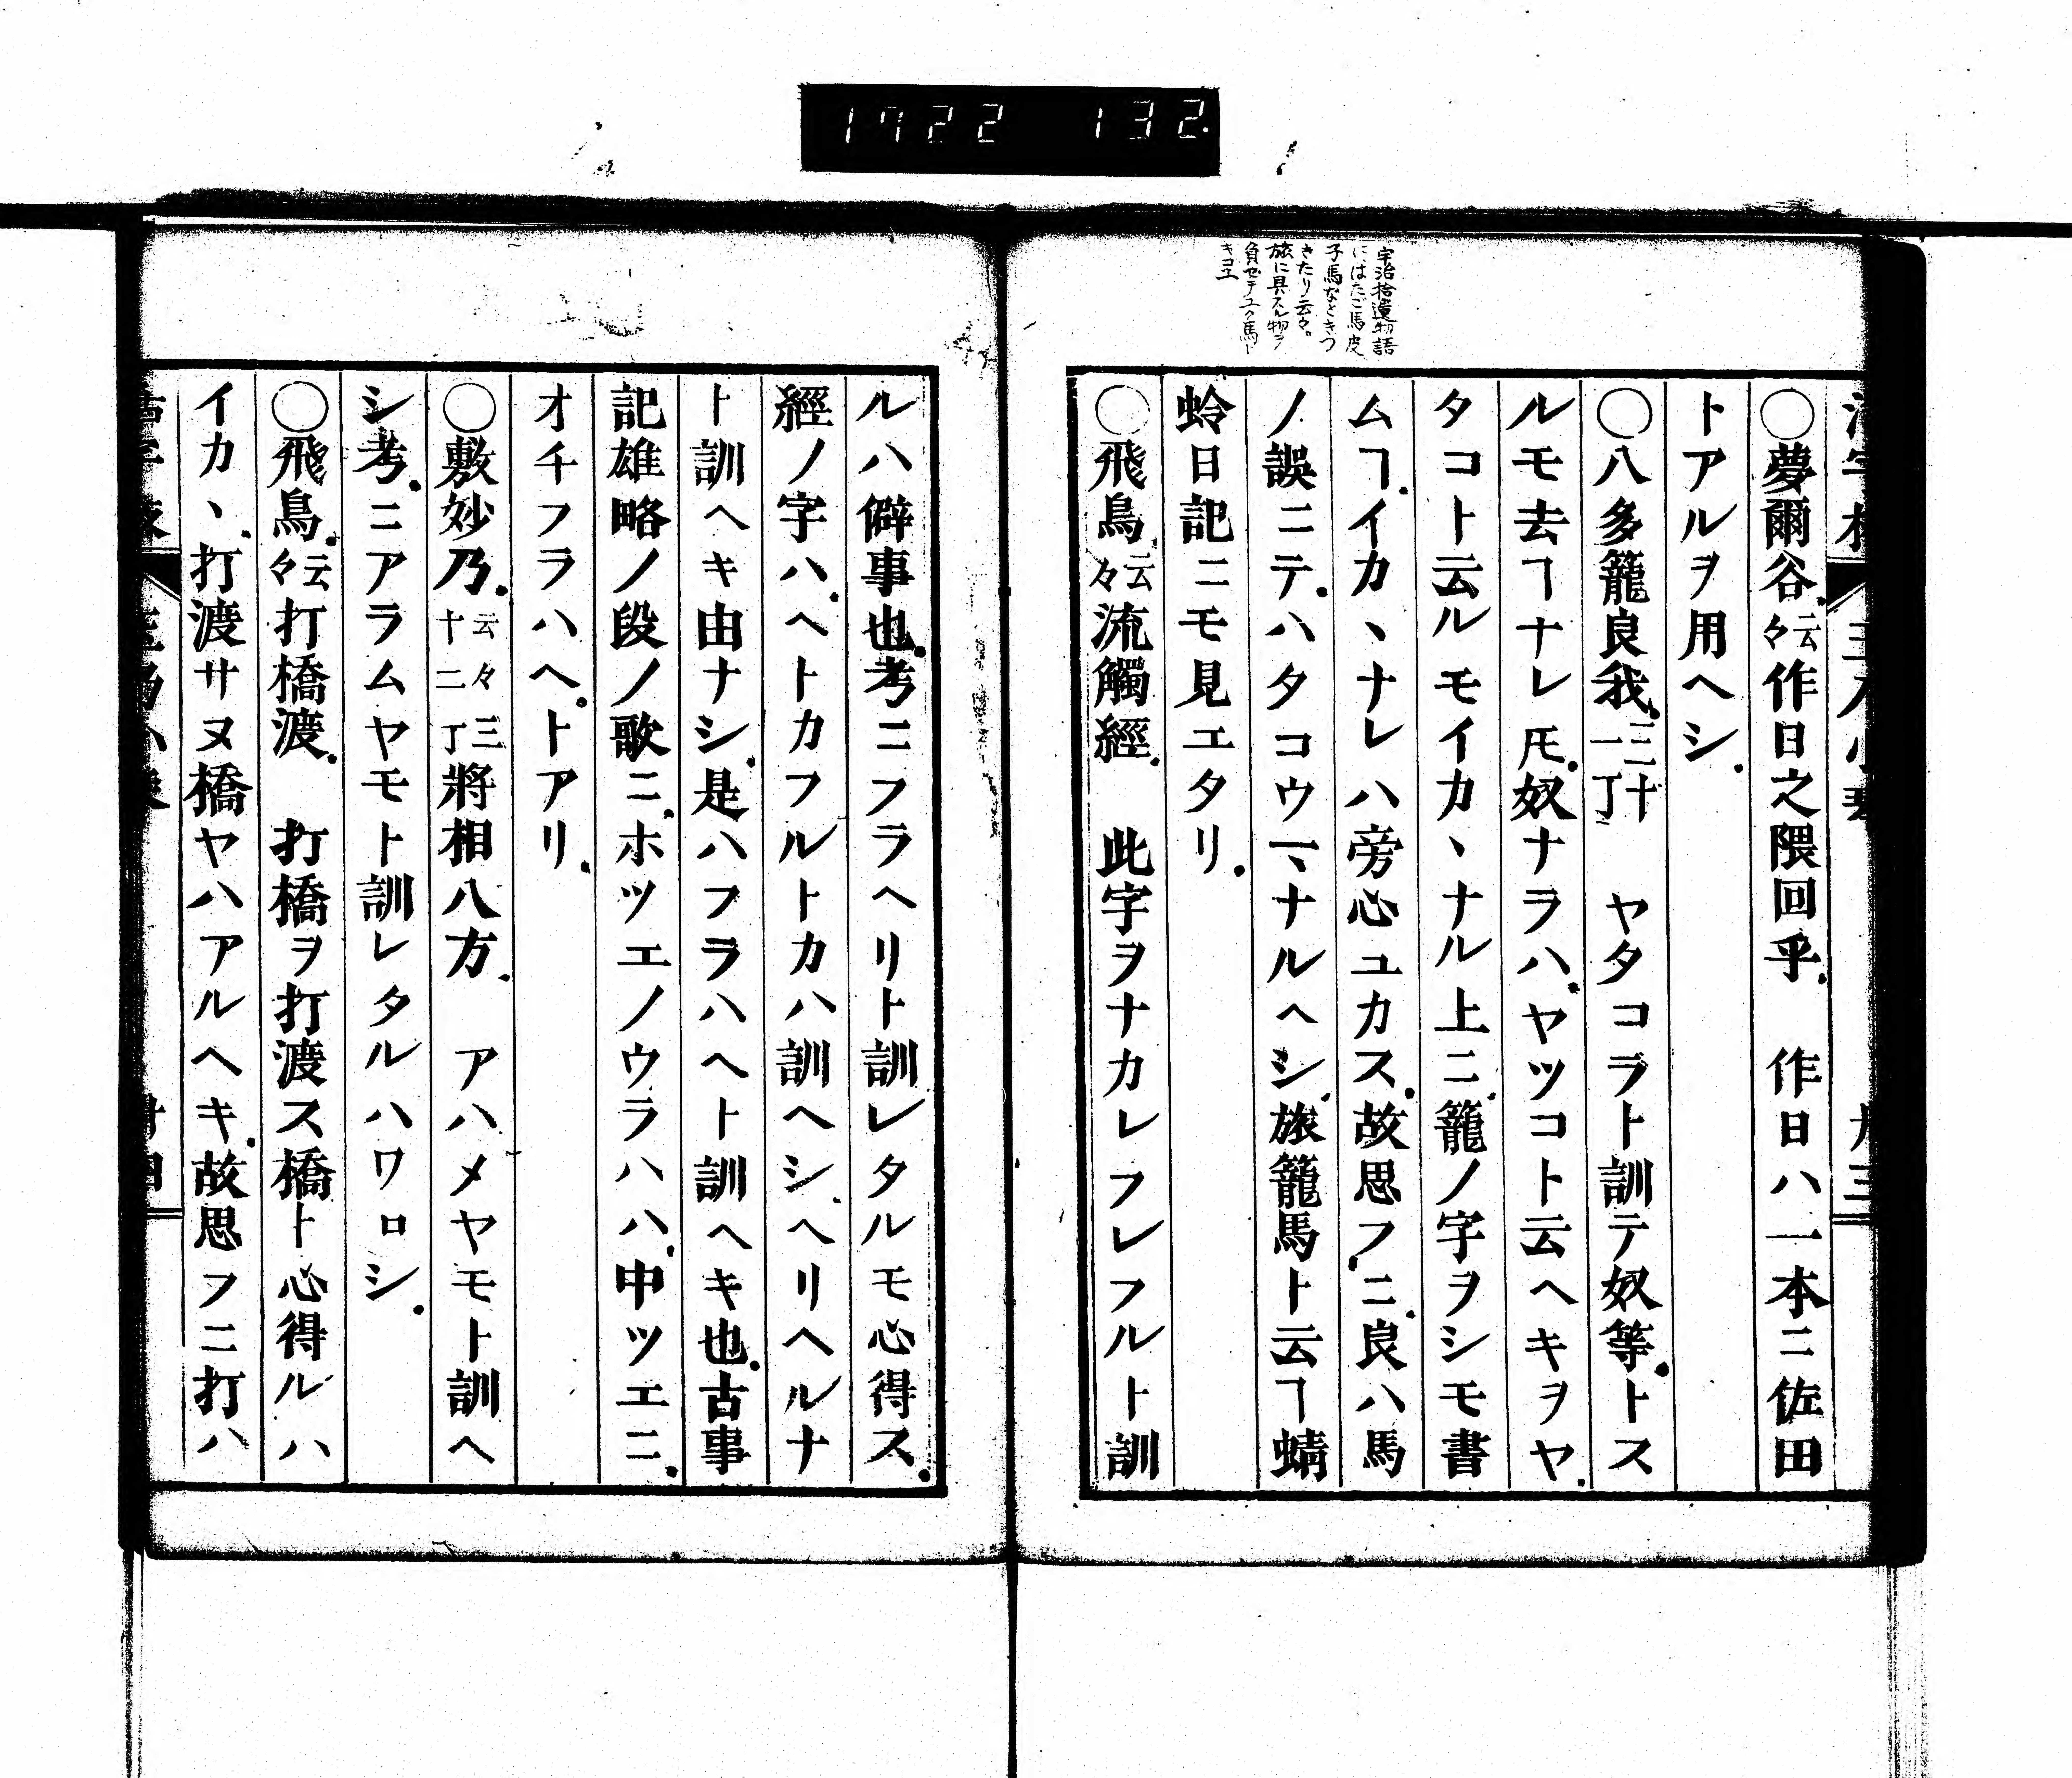 1722 132
宇治拾遺物語
にはたご馬皮
子馬などきつ
きたり云々。
旅に具スル物ヲ
負セテユク馬ト
キコエ
〇夢爾谷.云々作日之隈回乎. 作日ハ一本ニ佐田
トアルヲ用ヘシ.
〇八多籠良我.三十一丁 ヤタコラト訓テ奴等.トス
ルモ去ヿナレ𪜈.奴ナラハ.ヤツコト云ヘキヲヤ.
タコト云ルモイカヽナル上ニ.籠ノ字ヲシモ書
ムヿ.イカヽナレハ旁心ユカス.故思フ.ニ.良ハ馬
ノ誤ニテ.ハタコウマヽナルヘシ.旅籠馬ト云ヿ蜻
蛉日記ニモ見エタリ.
〇飛鳥.云々流觸經. 此字ヲナカレフレフルト訓
ルハ僻事也.考ニフラヘリト訓レタルモ心得ス.
經ノ字ハ.ヘトカフルトカハ訓ヘシ.ヘリヘルナ
ト訓ヘキ由ナシ.是ハフラハヘト訓ヘキ也.古事
記雄略ノ段ノ歌ニ.ホツエノウラハハ.中ツエニ.
オチフラハヘ.トアリ.
〇敷妙乃.云々三十二丁將相八方. アハメヤモト訓ヘ
シ考.ニアラムヤモト訓レタルハワロシ.
〇飛鳥.云々打橋渡. 打橋ヲ打渡ス橋ト心得ルハ
イカヽ.打渡サヌ橋ヤハアルヘキ.故思フニ打ハ